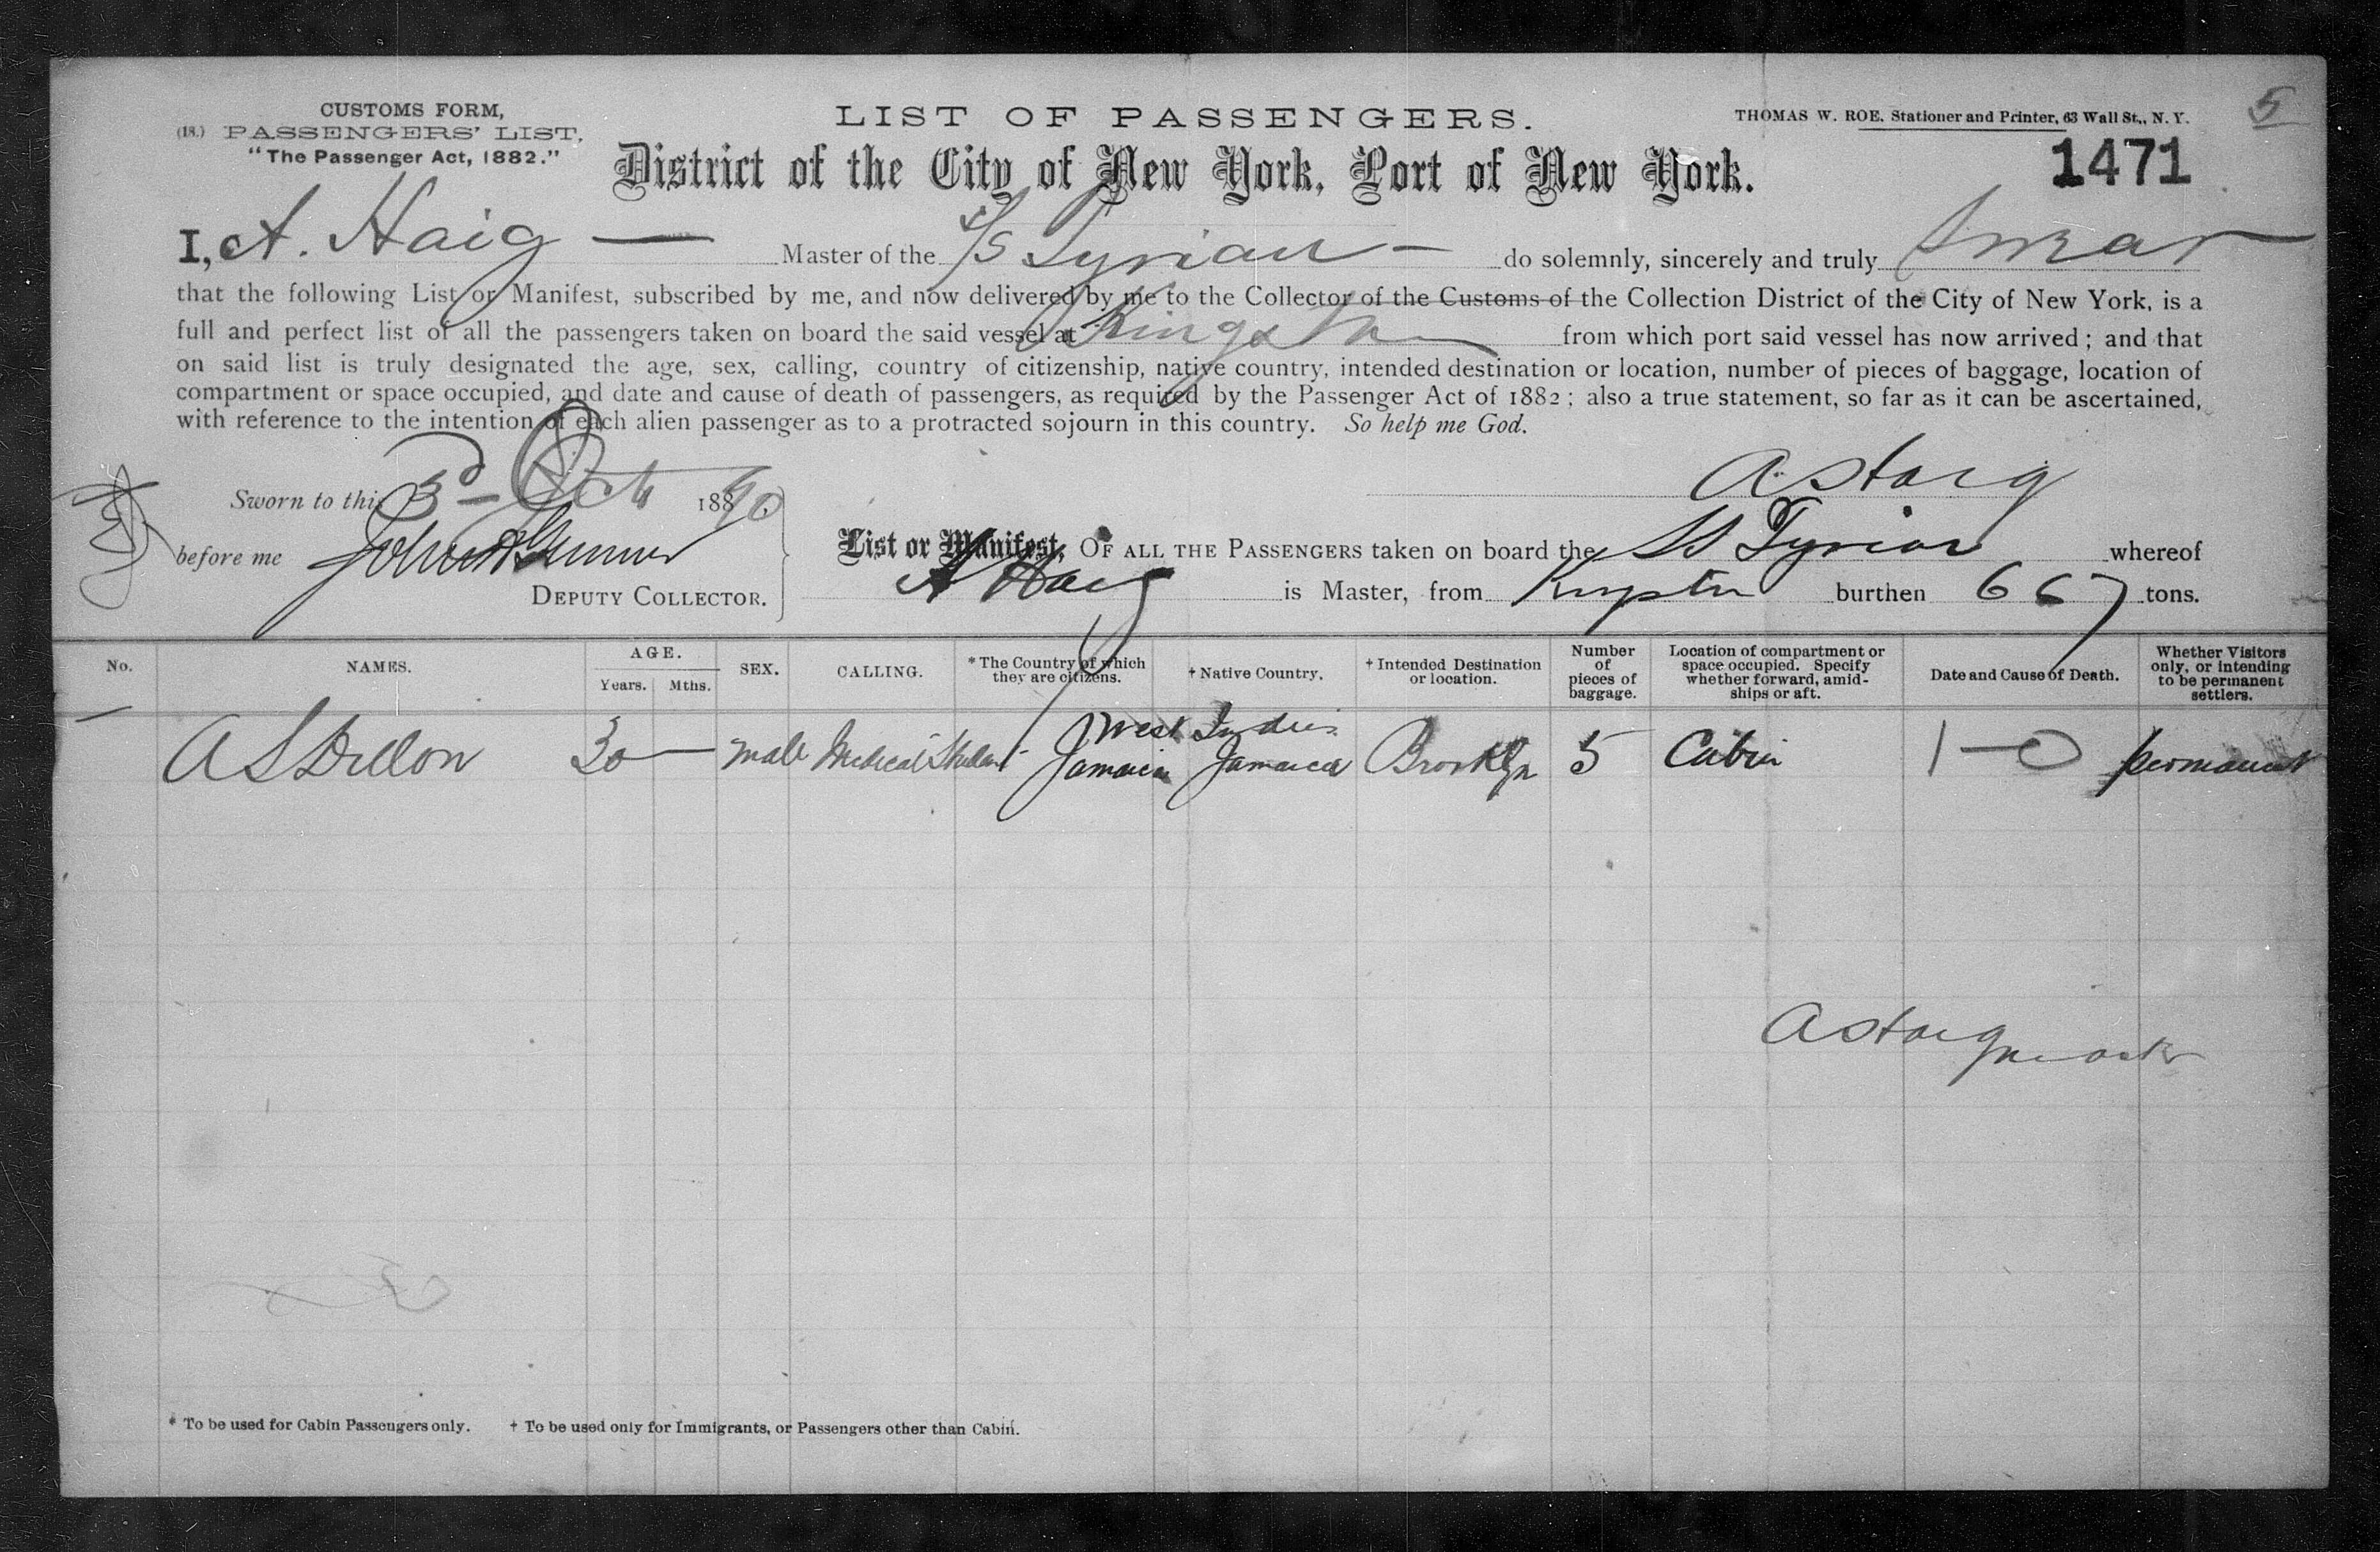 CUSTOMS FORM,
(18.) PASSENGERS' LIST.
"The Passenger Act, 1882."
LIST OF PASSENGERS.
District of the City of New York, Port of New York.
THOMAS W. ROE, Stationer and Printer, 63 Wall St., N. Y.
5
1471
I, A. Haig — Master of the S/S Tyrian — do solemnly, sincerely and truly swear
that the following List or Manifest, subscribed by me, and now delivered by me to the Collector of the Customs of the Collection District of the City of New York, is a
full and perfect list of all the passengers taken on board the said vessel at Kingston from which port said vessel has now arrived; and that
on said list is truly designated the age, sex, calling, country of citizenship, native country, intended destination or location, number of pieces of baggage, location of
compartment or space occupied, and date and cause of death of passengers, as required by the Passenger Act of 1882; also a true statement, so far as it can be ascertained,
with reference to the intention of each alien passenger as to a protracted sojourn in this country. So help me God.
A. Haig
Sworn to this 3d Oct 1890
before me John
DEPUTY COLLECTOR.
List or Manifest, OF ALL THE PASSENGERS taken on board the SS Tyrian whereof
A Haig is Master, from Kingston burthen 667 tons.
No. NAMES. AGE. Years. Mths. SEX. CALLING. * The Country of which they are citizens. † Native Country. † Intended Destination or location. Number of pieces of baggage. Location of compartment or space occupied. Specify whether forward, amid-ships or aft. Date and Cause of Death. Whether Visitors only, or intending to be permanent settlers.
West Indies
A S Dillon 30 — male Medical Student Jamaica Jamaica Brooklyn 5 Cabin 1—0 permanent
A Haig master
* To be used for Cabin Passengers only. † To be used only for Immigrants, or Passengers other than Cabin.